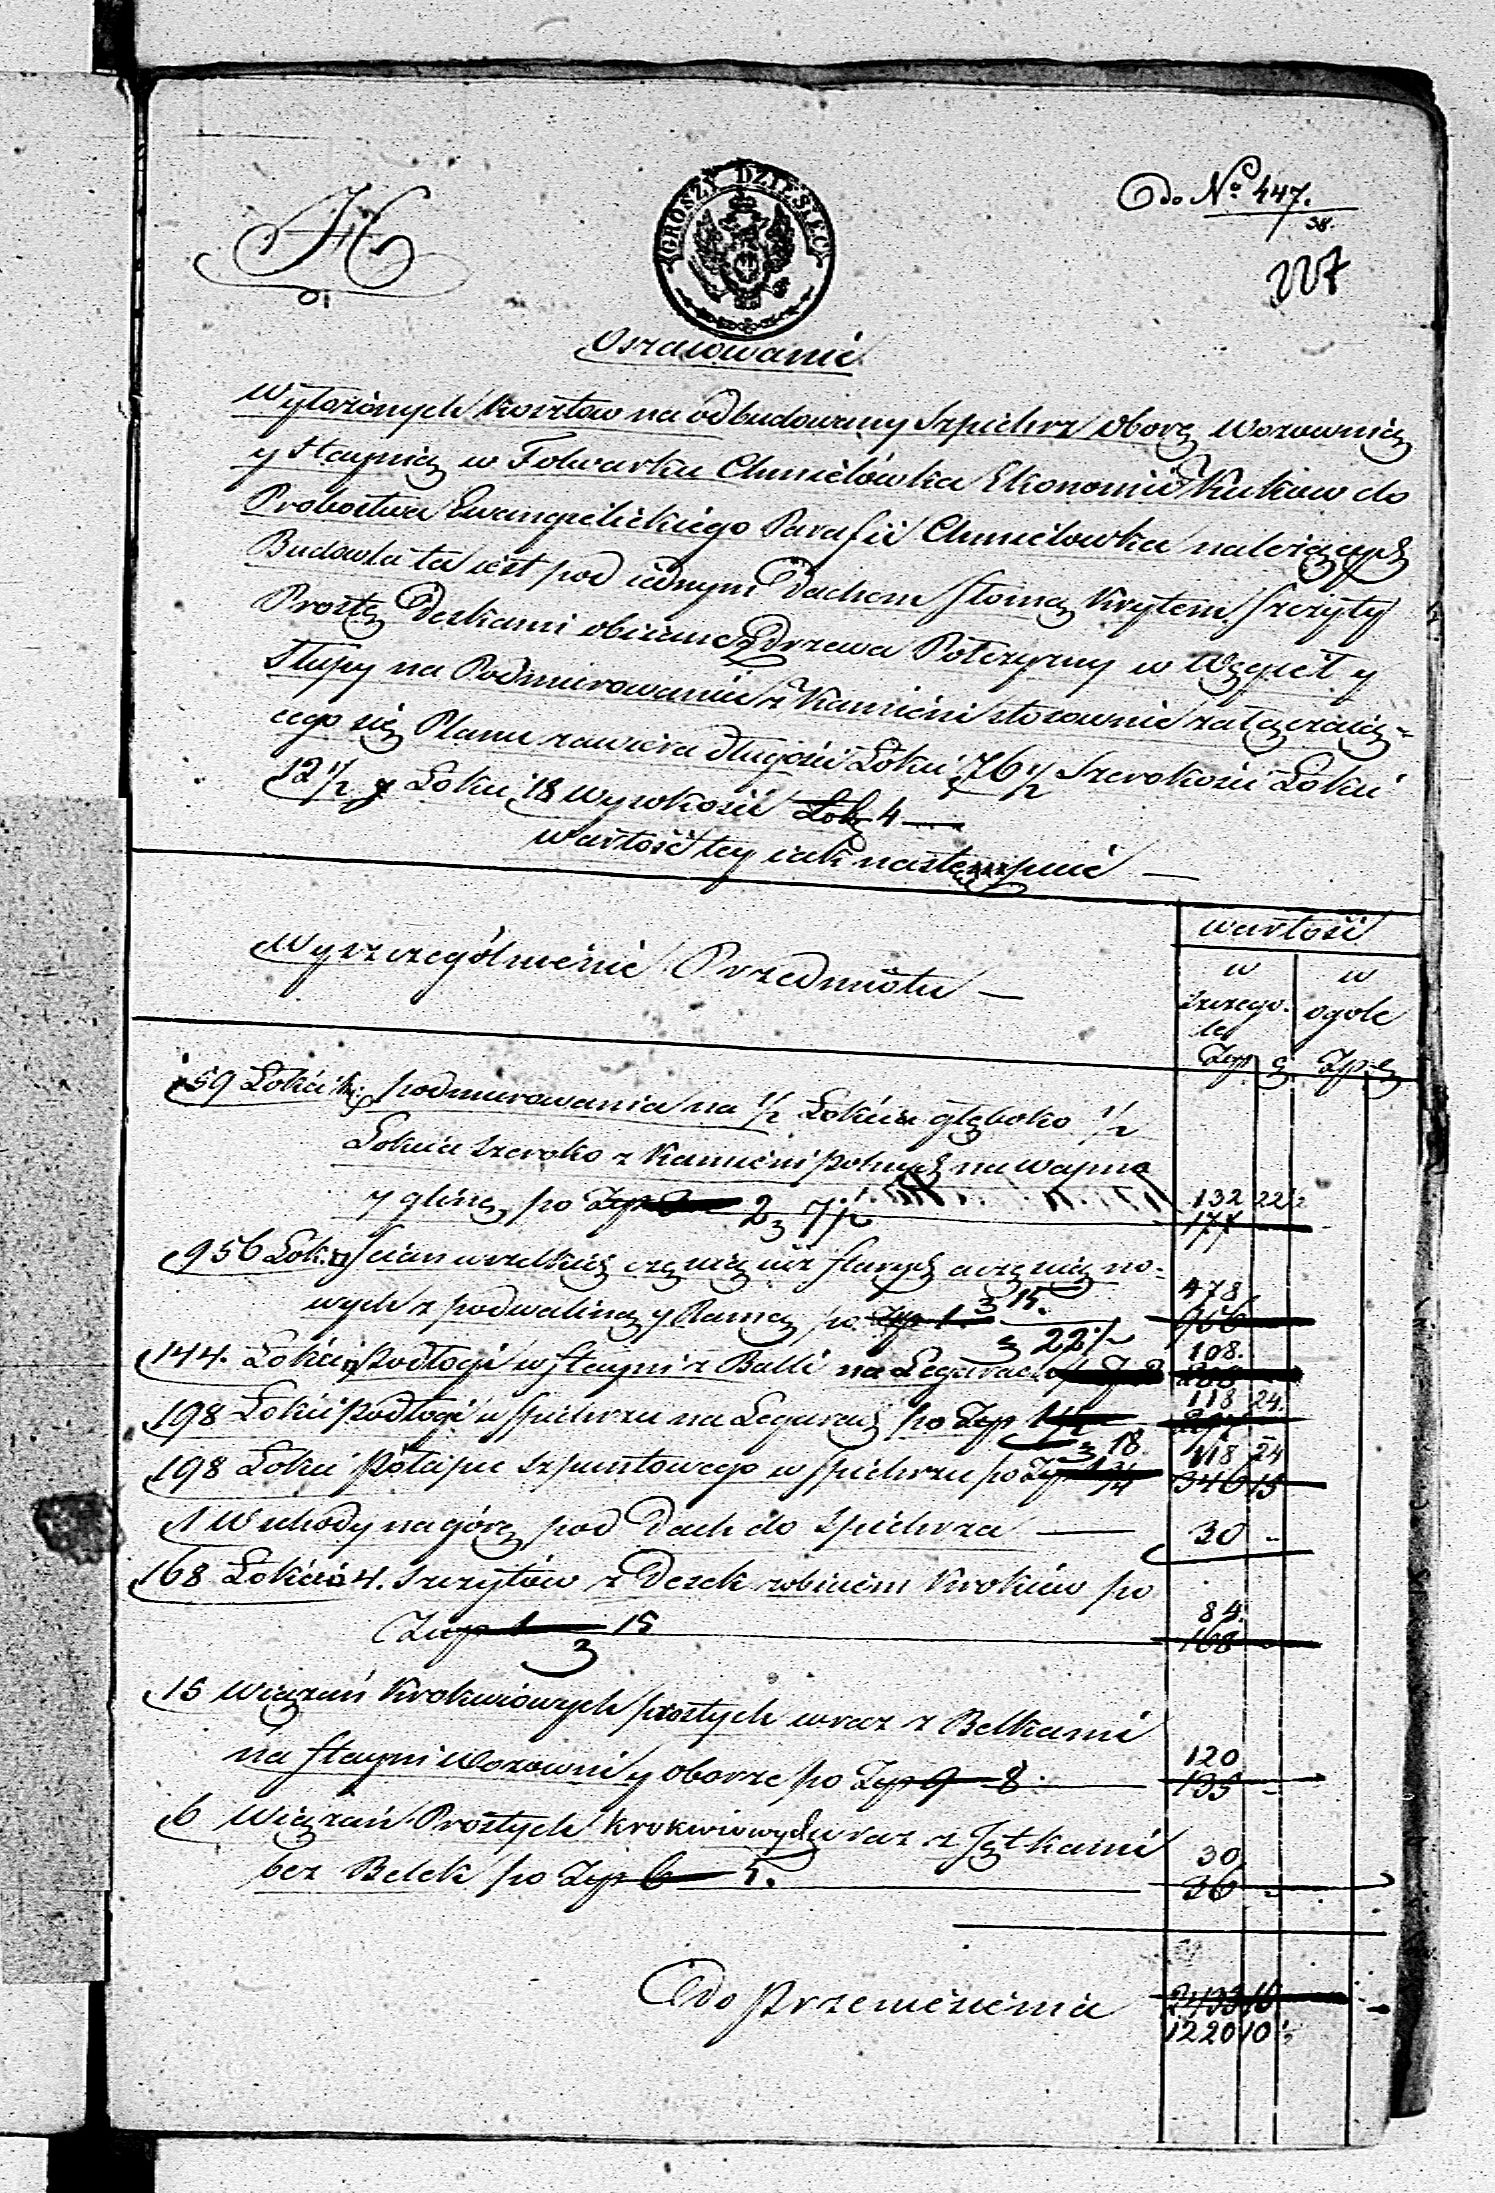 Do No 447.
38.
227
GROSZY DZIESIĘC
Oszacowanie
Wyłożonych Kosztow na odbudowany Szpichrz oborę wozownię
y Staynię w Folwarku Chmielówka Ekonomii Kukow do
Probostwa Ewangielickiego Parafii Chmielowka należących
Budowla ta iest pod iednym Dachem słomą krytem szczyty
Prostę Deskami obiiane z Drzewa Potrzyzny w Węgieł y
Słupy na Podmurowaniu z Kamieni stosownie załączaią-
cego się Planu zawiera długości Łokci 76 1/2 Szerokości Łokci
12 1/2 y Łokci 18 wysokości Łok 4 —
wartość tey iak nastempuie —
Wyszczególnienie Przedmiotu —
wartość
w szczegole
w ogole
Zlp g Zp g
59 Łokci podmurowania na 1/2 Łokcia głęboko 1/2
Łokcia szeroko z Kamieni polnych na wapno
y glinę po Zlp 2 7 1/2 132 22 1/2
177
956 Łok. scian wszelkich częscią iuż starych a częscią no-
wych z podwaliną y Ramą po Zlp 1 15. 478
956
144. Łokci podłogi w stayni z Balli na Legarach 22 1/2 108.
198 Łokci podłogi w spichrzu na Legarach po Zlp 1 1/2 18 118 24.
297
198 Łokci Półapu szpuntowego w spichrzu po Zlp 1 3/4 118 24
346 15
1 Wschody na górę pod Dach do Spichrza — 30 -
168 Łokci 4. szczytów z Desek z obiciem Krokiew po
Zlp 1 15 84.
168
15 Wiązań Krokwiowych prostych wraz z Belkami
na stayni Wozowni y oborze po Zlp 9 8. 120
135 -
6 Wiązań Prostych krokwiowych wraz z Jętkami
bez Belek po Zlp 6 5. 30
36 -
do Przeniesienia 2433 15
1220 10 1/2